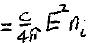 = c/4π E² nᵢ